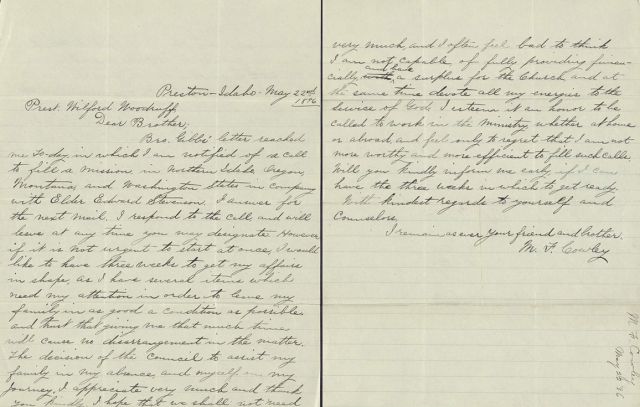 Preston - Idaho - May 22nd
1896
Prest. Wilford Woodruff.
Dear Brother;
Bro. Gibbs' letter reached
me to-day, in which I am notified of a call
to fill a mission in Northern Idaho, Oregon,
Montana, and Washington States in company
with Elder Edward Stevenson. I answer for
the next mail. I respond to the call and will
leave at any time you may designate. However
if it is not urgent to start at once, I would
like to have three weeks to get my affairs
in shape, as I have several items which
need my attention in order to leave my
family in as good a condition as possible
and trust that giving me that much time
will cause no disarrangement in the matter.
The decision of the Council to assist my
family in my absence and myself on my
journey, I appreciate very much and thank
you kindly. I hope that we shall not need
very much, and I often feel bad to think
I am not capable of fully providing finan-
cially, and have a surplus for the Church, and at
the same time devote all my energies to the
Service of God. I esteem it an honor to be
called to work in the Ministry, whether at home
or abroad, and feel only to regret that I am not
more worthy and more efficient to fill such calls.
Will you kindly inform me early if I can
have the three weeks in which to get ready.
With kindest regards to yourself and
Counselors,
I remain as ever Your friend and brother.
M. F. Cowley
M. F. Cowley
May 96